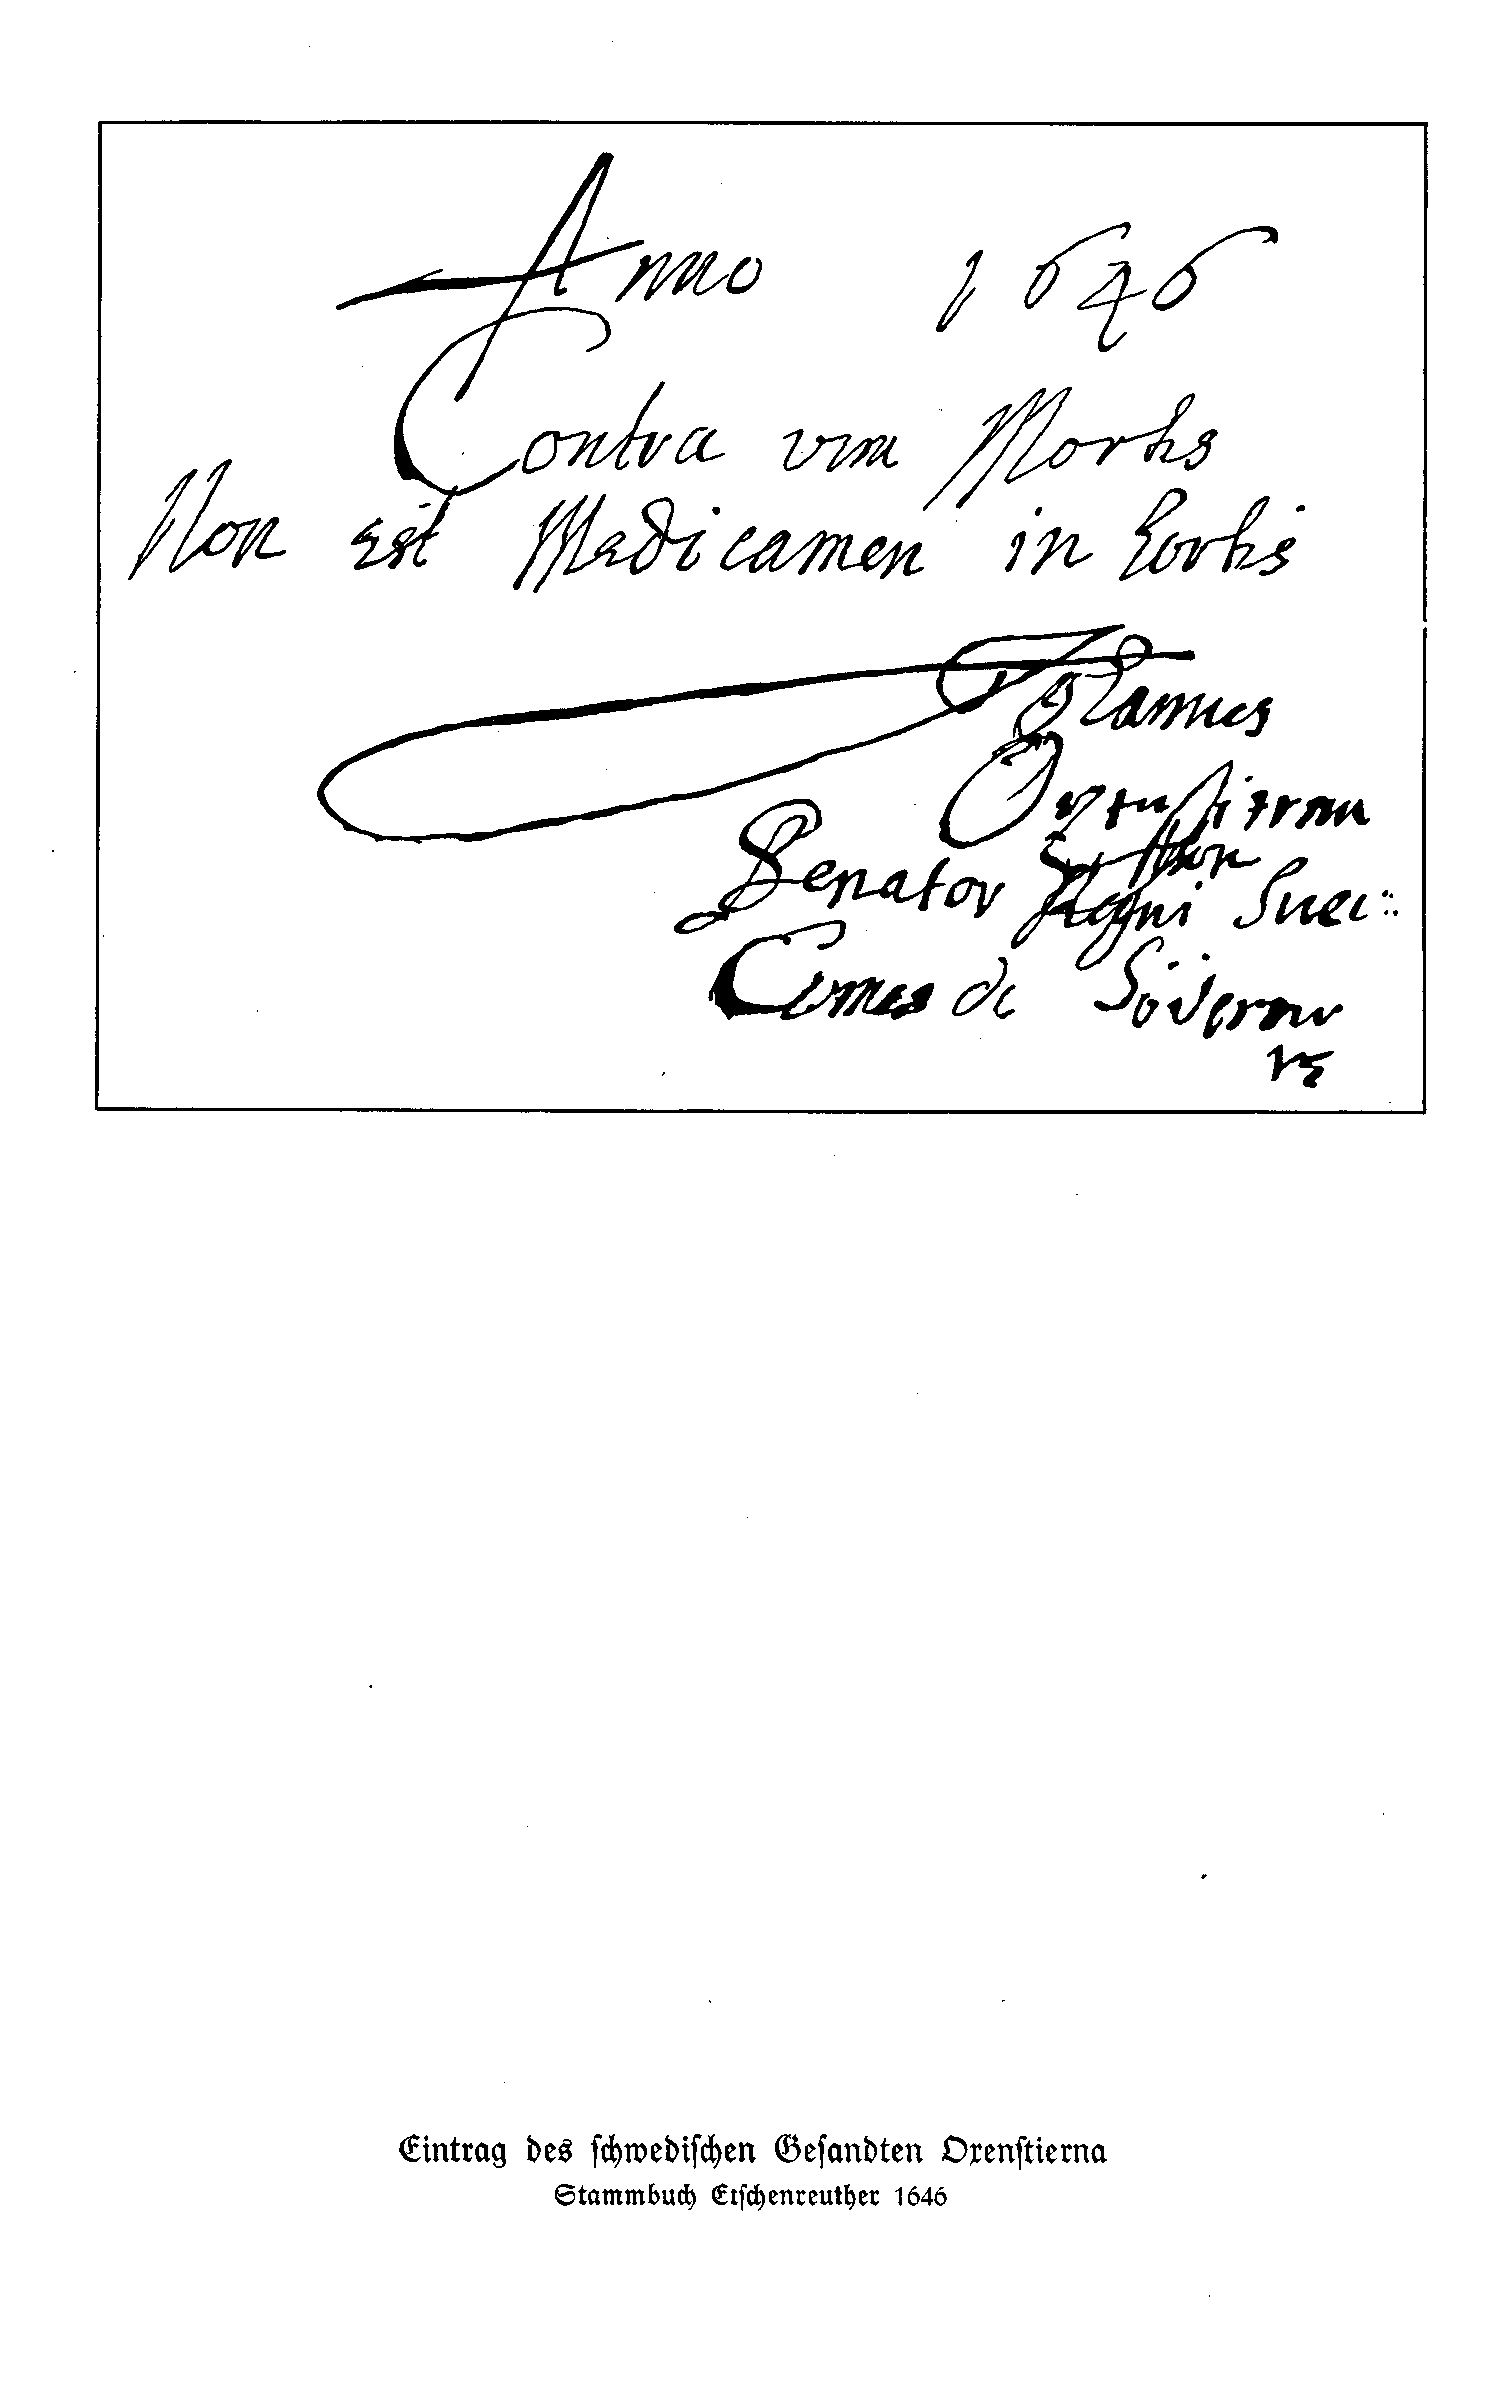 Anno 1646
Contra vim Mortis
Non est Medicamen in hortis
Johannes
Oxenstierna
Axelson
Senator Regni Suec::
Comes de Söderm
re
Eintrag des ſchwediſchen Geſandten Oxenſtierna
Stammbuch Etſchenreuther 1646